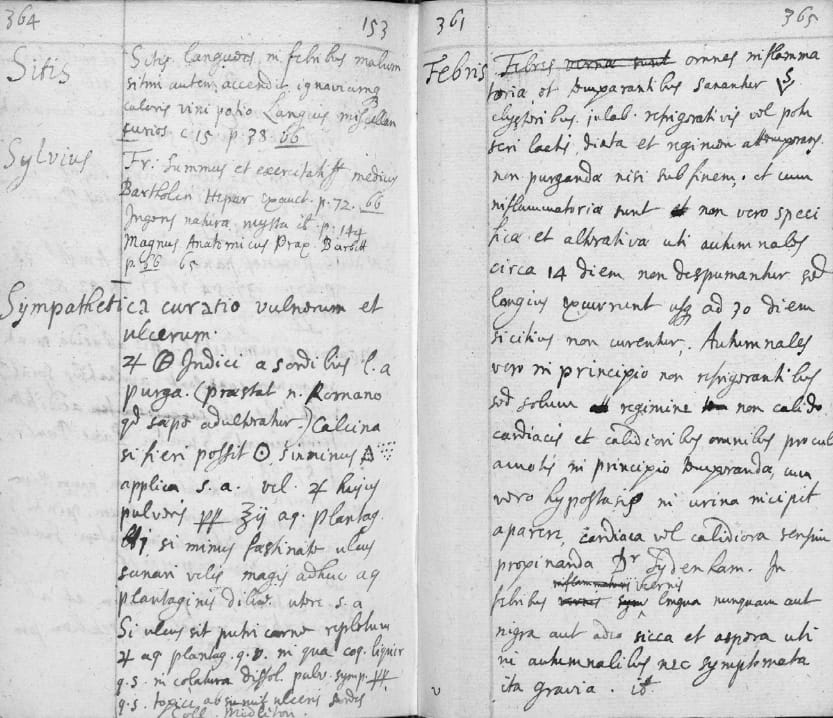 364
153
Sitis
Sitis. Languores in febribus malum
sitim autem accendit ignavicumq
caloris vini potio Langius miscellan
curios. c. 15. p. 38. 66
Sylvius
Fr: Summus et exercitatiss medicus
Bartholin Hepar exauct. p. 72. 66
Ingens naturæ mysta ib. p. 144
Magnus Anatomicus Præf. Barbett
p. 26 65
Sympathetica curatio vulnerum et
ulcerum.
♃ Indici a sordibus l. a
purga. (præstat n. Romano
qd sæpe adulteratur.) Calcina
si fieri possit ☉ Suminus
applica s. a. vel. ♃ hujus
pulveris ʒij aq. plantag.
si minus festinato ulcus
sanari velis magis adhuc aq
plantaginis utere s. a
Si ulcus sit putri carne repletum
♃ aq plantag. q. v. in qua coq. liquir
q. s. in colatura dissol. pulv. symp.
q. s. topici, ulceris sordes
Coll. Midleton.
361
365
Febris
Febris vernæ sunt omnes inflamma
toria et temperantibus sanantur VS.
clysteribus. julab. refrigerativis vel potu
seri lactis, diæta et regimen attemperans.
non purganda nisi sub finem; et cum
inflammatoriæ sunt et non vero speci
ficæ et alterativæ uti autumnales
circa 14 diem non despumantur sed
longius excurrunt usq ad 30 diem
si citius non curentur. Autumnales
vero in principio non refrigerantibus
sed solum regimine non calido
cardiacis et calidioribus omnibus procul
amotis in principio temperandæ, cum
vero hypostasis in urina incipit
aparere, cardiaca vel calidiora sensim
propinanda Dr Sydenham. In
inflammatoriis vernis
febribus vernis lingua nunquam aut
nigra aut adeo sicca et aspera uti
in autumnalibus nec symptomata
ita gravia. ib.